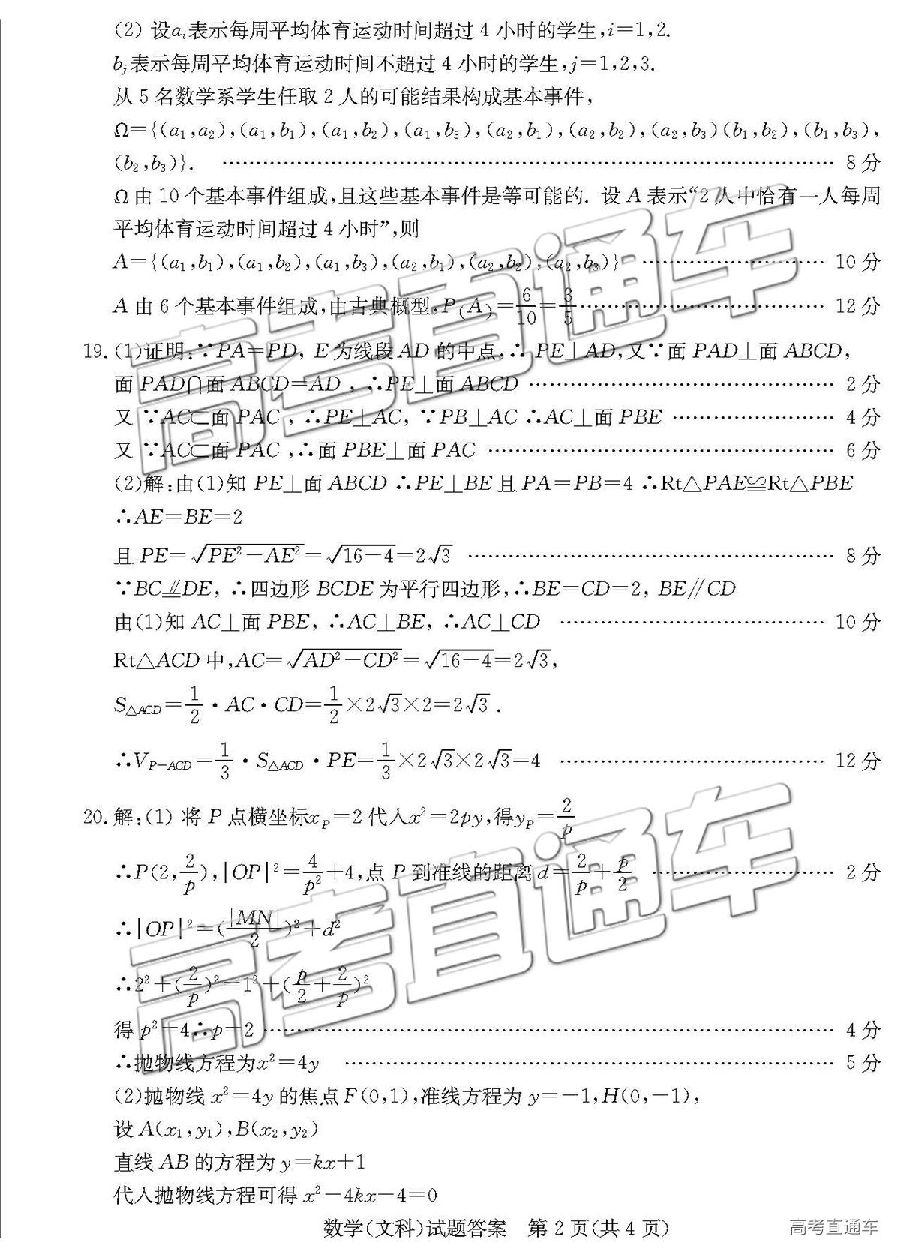 (2) 设aᵢ表示每周平均体育运动时间超过 4 小时的学生,i=1,2.
bⱼ表示每周平均体育运动时间不超过 4 小时的学生,j=1,2,3.
从 5 名数学系学生任取 2 人的可能结果构成基本事件,
Ω={(a₁,a₂),(a₁,b₁),(a₁,b₂),(a₁,b₃),(a₂,b₁),(a₂,b₂),(a₂,b₃)(b₁,b₂),(b₁,b₃),
(b₂,b₃)}. …… 8 分
Ω 由 10 个基本事件组成,且这些基本事件是等可能的. 设 A 表示“2 人中恰有一人每周
平均体育运动时间超过 4 小时”,则
A={(a₁,b₁),(a₁,b₂),(a₁,b₃),(a₂,b₁),(a₂,b₂),(a₂,b₃)} …… 10 分
A 由 6 个基本事件组成,由古典概型,P(A)=6/10=3/5 …… 12 分
19. (1)证明:∵PA=PD, E 为线段 AD 的中点,∴ PE⊥AD,又∵面 PAD⊥面 ABCD,
面 PAD∩面 ABCD=AD , ∴PE⊥面 ABCD …… 2 分
又 ∵AC⊂面 PAC , ∴PE⊥AC, ∵PB⊥AC ∴AC⊥面 PBE …… 4 分
又 ∵AC⊂面 PAC ,∴面 PBE⊥面 PAC …… 6 分
(2)解:由(1)知 PE⊥面 ABCD ∴PE⊥BE 且 PA=PB=4 ∴Rt△PAE≌Rt△PBE
∴AE=BE=2
且 PE=√(PE²−AE²)=√(16−4)=2√3 …… 8 分
∵BC⫽DE, ∴四边形 BCDE 为平行四边形,∴BE=CD=2, BE∥CD
由(1)知 AC⊥面 PBE, ∴AC⊥BE, ∴AC⊥CD …… 10 分
Rt△ACD 中,AC=√(AD²−CD²)=√(16−4)=2√3,
S△ACD=1/2·AC·CD=1/2×2√3×2=2√3.
∴V_P−ACD=1/3·S△ACD·PE=1/3×2√3×2√3=4 …… 12 分
20. 解:(1) 将 P 点横坐标x_P=2 代入x²=2py,得y_P=2/p
∴P(2,2/p),|OP|²=4/p²+4,点 P 到准线的距离 d=2/p+p/2 …… 2 分
∴|OP|²=(|MN|/2)²+d²
∴2²+(2/p)²=1²+(p/2+2/p)²
得 p²=4∴p=2 …… 4 分
∴抛物线方程为x²=4y …… 5 分
(2)抛物线 x²=4y 的焦点 F(0,1),准线方程为 y=−1,H(0,−1),
设 A(x₁,y₁),B(x₂,y₂)
直线 AB 的方程为 y=kx+1
代入抛物线方程可得 x²−4kx−4=0
数学(文科)试题答案 第 2 页(共 4 页)
高考直通车
高考直通车
高考直通车